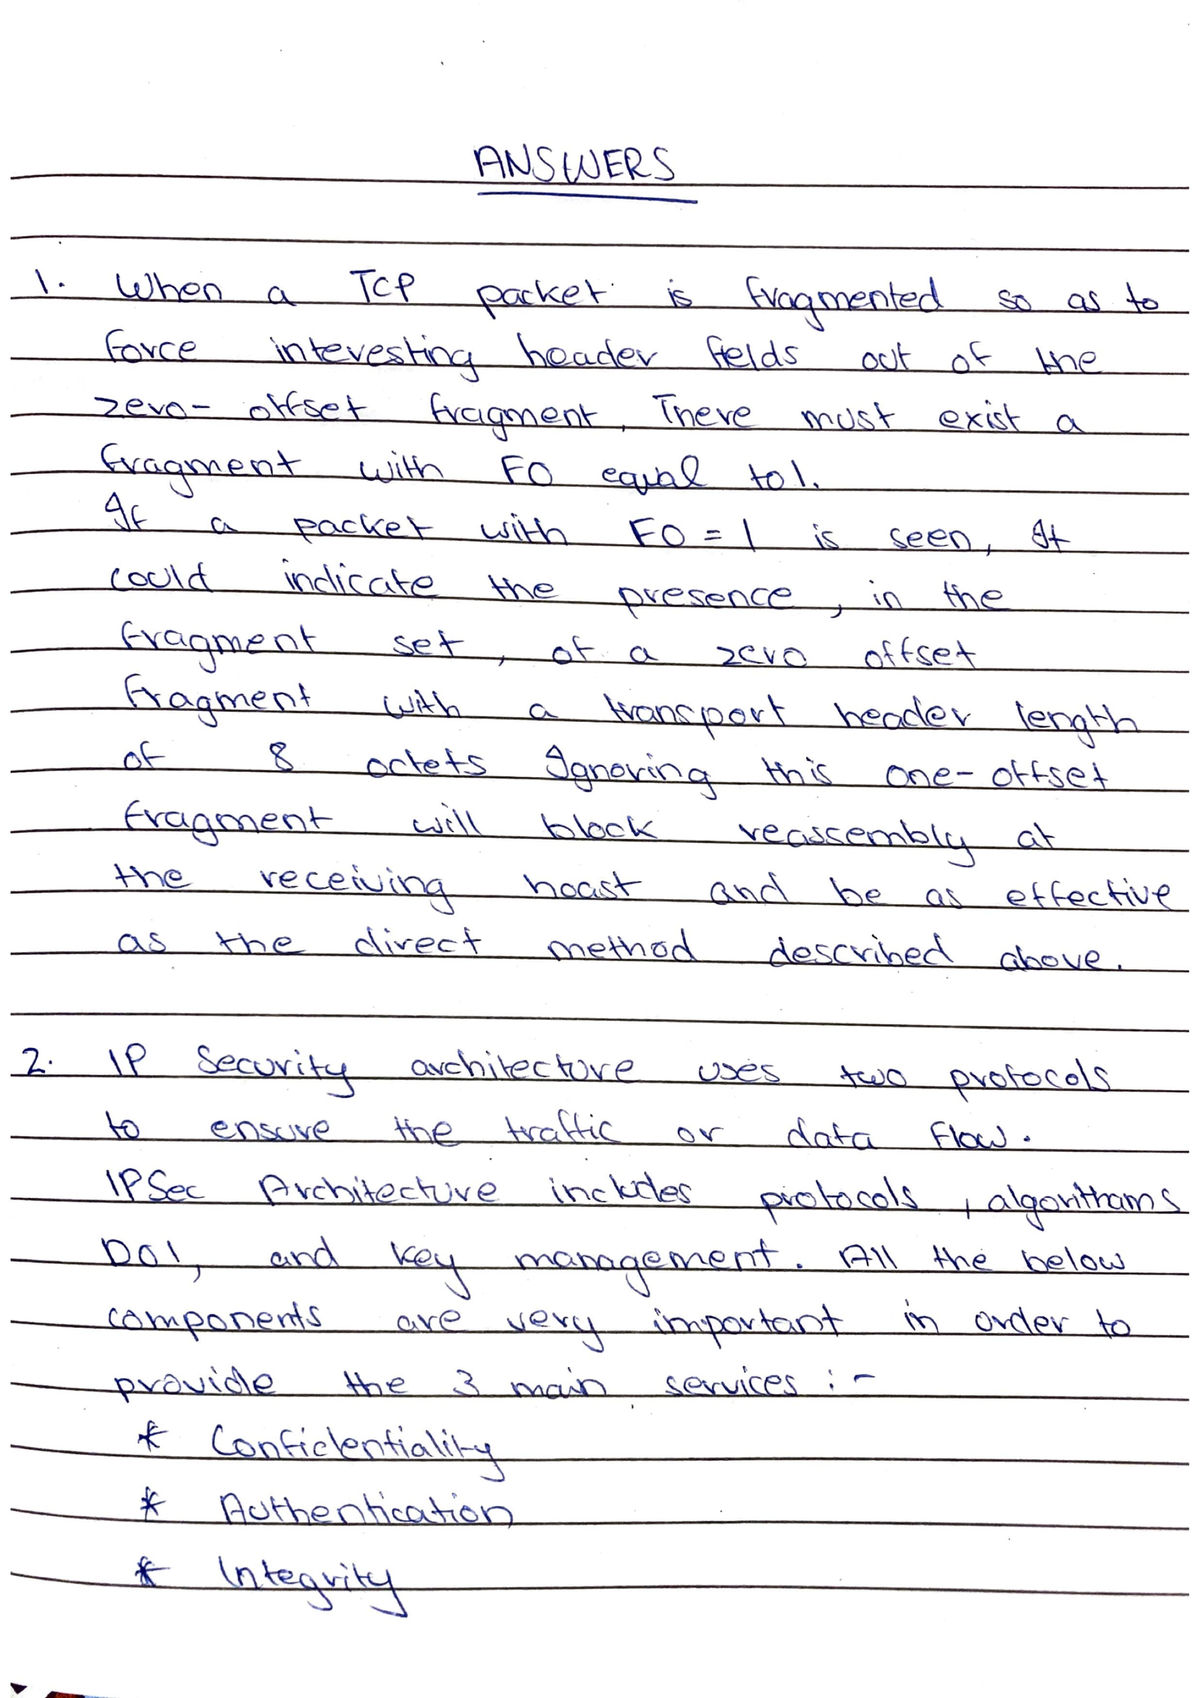 ANSWERS
1. When a TCP packet is fragmented so as to
force interesting header fields out of the
zero-offset fragment, There must exist a
fragment with FO equal to 1.
If a packet with FO = 1 is seen, It
could indicate the presence, in the
fragment set, of a zero offset
fragment with a transport header length
of 8 octets Ignoring this one-offset
fragment will block reassembly at
the receiving hoast and be as effective
as the direct method described above.
2. IP Security architecture uses two protocols
to ensure the traffic or data flow.
IPSec Architecture includes protocols, algorithams
DOI, and key management. All the below
components are very important in order to
provide the 3 main services :-
* Confidentiality
* Authentication
* Integrity